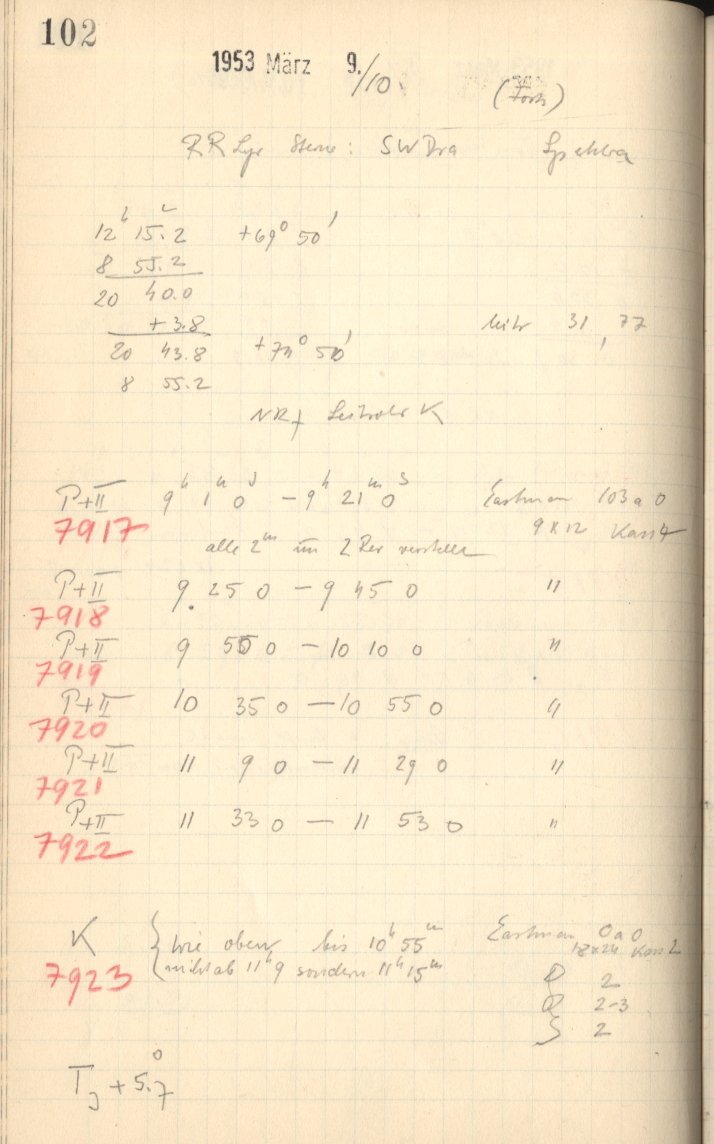 102
1953 März 9./10.
(Forts)
RR Lyr Sterne: SW Dra Spektra
12ʰ 15.2 +69° 50'
8 55.2
20 40.0
+3.8
20 43.8 +70° 50'
8 55.2
31, 77
Leitrohr K
P+II 9ʰ 1ᵐ 0ˢ – 9ʰ 21ᵐ 0ˢ Eastman 103 a 0
7917 9 x 12 Kass 4
alle 2ᵐ um 2 Rev verstellt
P+II 9. 25 0 – 9 45 0 "
7918
P+II 9 50 0 – 10 10 0 "
7919
P+II 10 35 0 – 10 55 0 "
7920
P+II 11 9 0 – 11 29 0 "
7921
P+II 11 33 0 – 11 53 0 "
7922
K { wie oben bis 10ʰ 55ᵐ Eastman 0a0
18x24 Kass 2
7923 nicht ab 11ʰ 9 sondern 11ʰ 15ᵐ
2
2-3
S 2
T_J + 5.°7